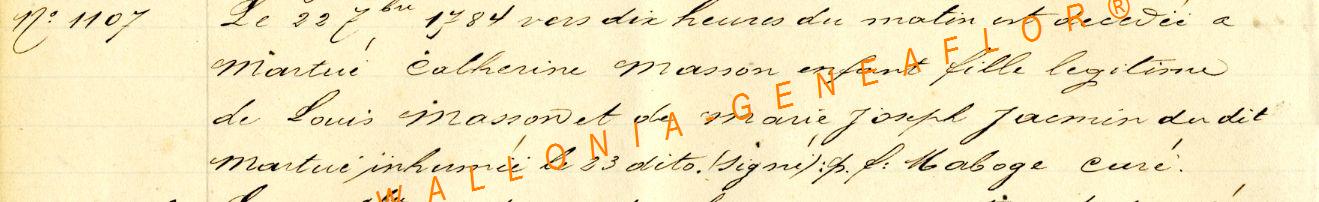 N° 1107 Le 22 7bre 1784 vers dix heures du matin est décédée a
Martué Catherine Masson enfant fille legitime
de Louis Masson et de Marie Joseph Jacmin du dit
Martué inhumée le 23 dito. (Signé): p. f: Maboge curé.
WALLONIA-GENEAFLOR®